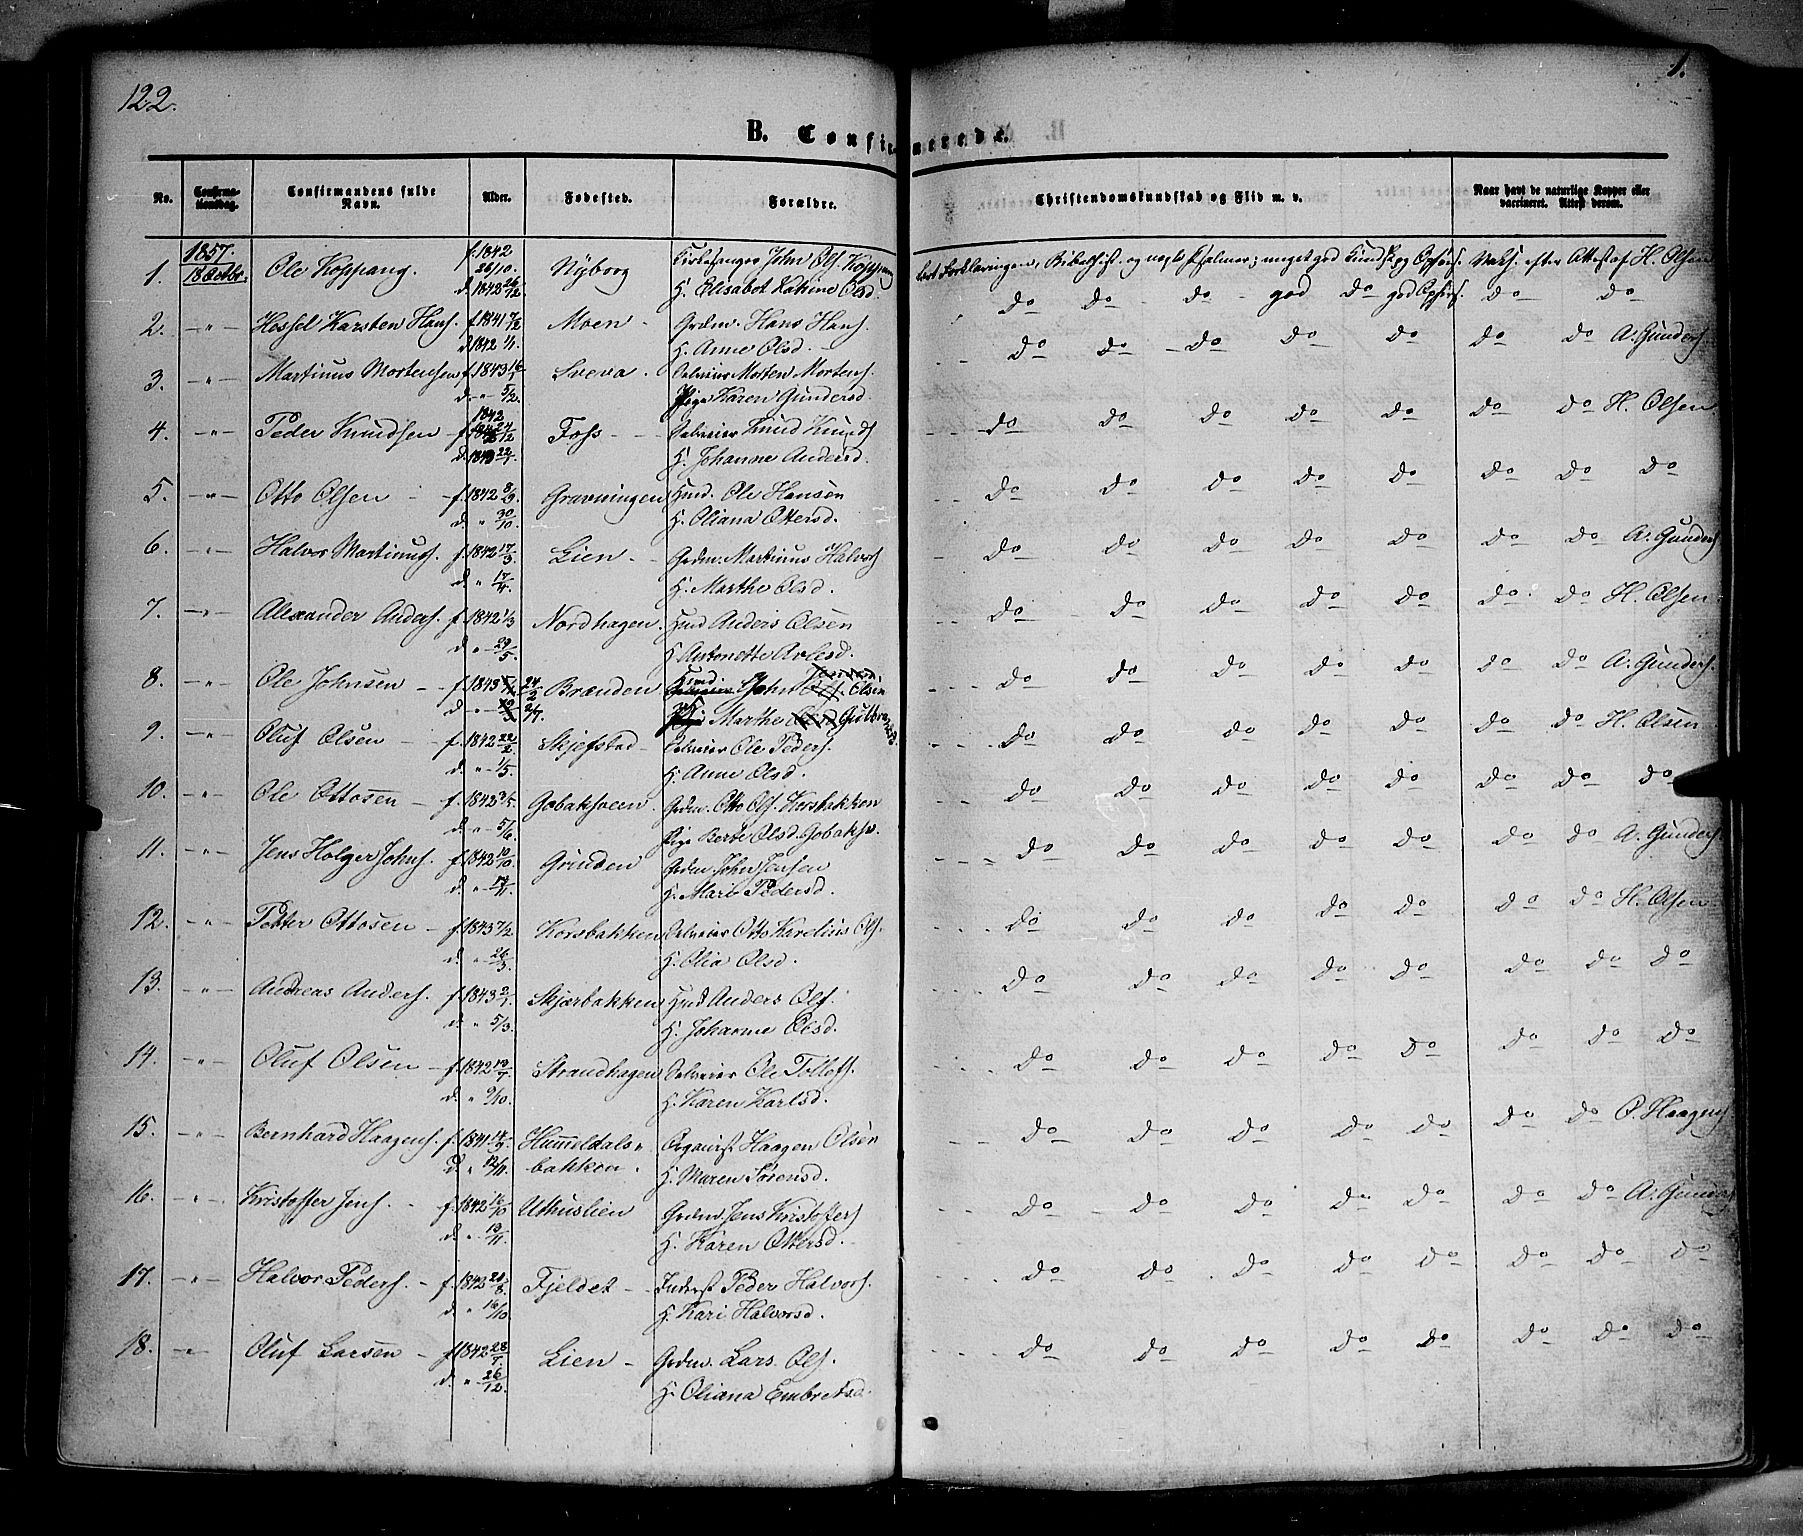 122.
1.
B. Confirmerede.
No.
Confirmationsdag.
Confirmandens fulde Navn.
Alder.
Fødested.
Forældre.
Christendomskundskab og Flid m. v.
Naar havt de naturlige Kopper eller vaccineret. Attest derom.
1. 1857. 18 Octbr. Ole Koppang. f. 1842 26/10. Nyborg Kirkesanger John Ols. Koppang
d. 1842 26/12. H. Elisabet Katrine Olsd.
lært Forklaringen, Bibelhist. og nogle Psalmer; meget god Kundsk. og Opførs. Vaks. efter Attest af H. Olsen
2. -„- Hessel Karsten Hans. f. 1841 7/12 Moen - Grdm. Hans Hans.
d. 1842 1/1. H. Anne Olsd. -
do do do god do god Opførs. do do
3. -„- Martinus Mortensen f. 1843 Sveva. Selveier Morten Mortens.
d. -„- 5/2. Pige Karen Gundersd.
do do do do do do do A. Gunders.
4. -„- Peder Knudsen f. 1842 24/12 Foss - - Selveier Knud Knuds.
d. 1843 22/1. H. Johanne Andersd.
do do do do do do do H. Olsen
5. -„- Otto Olsen - f. 1842 8/9 Gravningen Husd. Ole Hansen
d. „ 30/10. H. Oliana Ottersd.
do do do do do do do do
6. -„- Halvor Martinus. f. 1842 17/3 Lien - Grdm. Martinus Halvors.
d. „ 17/4. H. Marthe Olsd.
do do do do do do do A. Gunders.
7. -„- Alexander Anders. f. 1842 1/3 Nordhagen. Husd Anders Olsen
d. -„- 29/5. H. Antonette Arlesd.
do do do do do do do H. Olsen
8. -„- Ole Johnsen - f. 1843 24/2 Brænden Husd John Olsen
d. -„- 2/7. Marthe Gulbrandsd.
do do do do do do do A. Gunders.
9. -„- Oluf Olsen - f. 1842 22/2. Skjefstad - Selveier Ole Peders.
d. „ 1/5. H. Anne Olsd.
do do do do do do do H. Olsen
10. -„- Ole Ottosen - f. 1842 Gobakhoen. Grdm. Otto Ols. Korsbakken
d. -„- 5/6. Pige Berte Olsd. Gobakh.
do do do do do do do do
11. -„- Jens Holger Johns. f. 1842 10/10. Grinden Grdm John Jensen
d. „ H. Mari Pedersd.
do do do do do do do A. Gunders.
12. -„- Petter Ottosen - f. 1843 7/2 Korsbakken Selveier Otto Karelius Ols.
d. „ 26/3. H. Olia Olsd.
do do do do do do do H. Olsen
13. -„- Andreas Anders. f. 1843 2/1. Skjærbakken Husd Anders Ols.
d. „ 5/3. H. Johanne Olsd.
do do do do do do do do
14. -„- Oluf Olsen - f. 1842 Strandhagen Selveier Ole Tollefs.
d. „ 9/10. H. Karen Karlsd.
do do do do do do do do
15. -„- Bernhard Haagens. f. 1841 Hummeldals- Organist Haagen Olsen
d. „ bakken. H. Maren Sørensd.
do do do do do do do O. Haagens.
16. -„- Kristoffer Jens. - f. 1842 16/10 Uthuslien Grdm Jens Kristoffers.
d. „ H. Karen Ottersd.
do do do do do do do A. Gunders.
17. -„- Halvor Peders. - f. 1842 Fjeldet - Inderst Peder Halvors.
d. „ 16/10. H. Kari Halvorsd.
do do do do do do do do
18. -„- Oluf Larsen - f. 1842 28/7. Lien - Grdm. Lars Ols.
d. „ 26/12. H. Oliana Embretsd.
do do do do do do do do